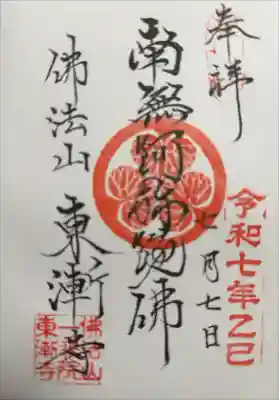 奉拝
令和七年乙巳
七月七日
南無阿弥陀佛
佛法山 東漸寺
佛法山
一乗院
東漸寺